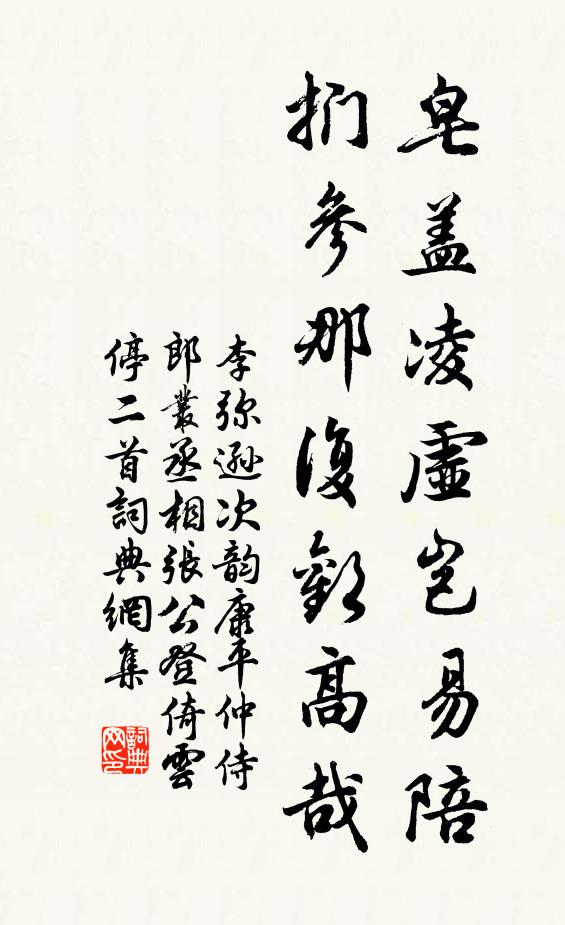 皂盖凌虛岂易陪
捫參那復歎高哉
李弥遜次韵康平仲侍
郎叢丞相張公登倚雲
停二首詞典網集
詞典网印